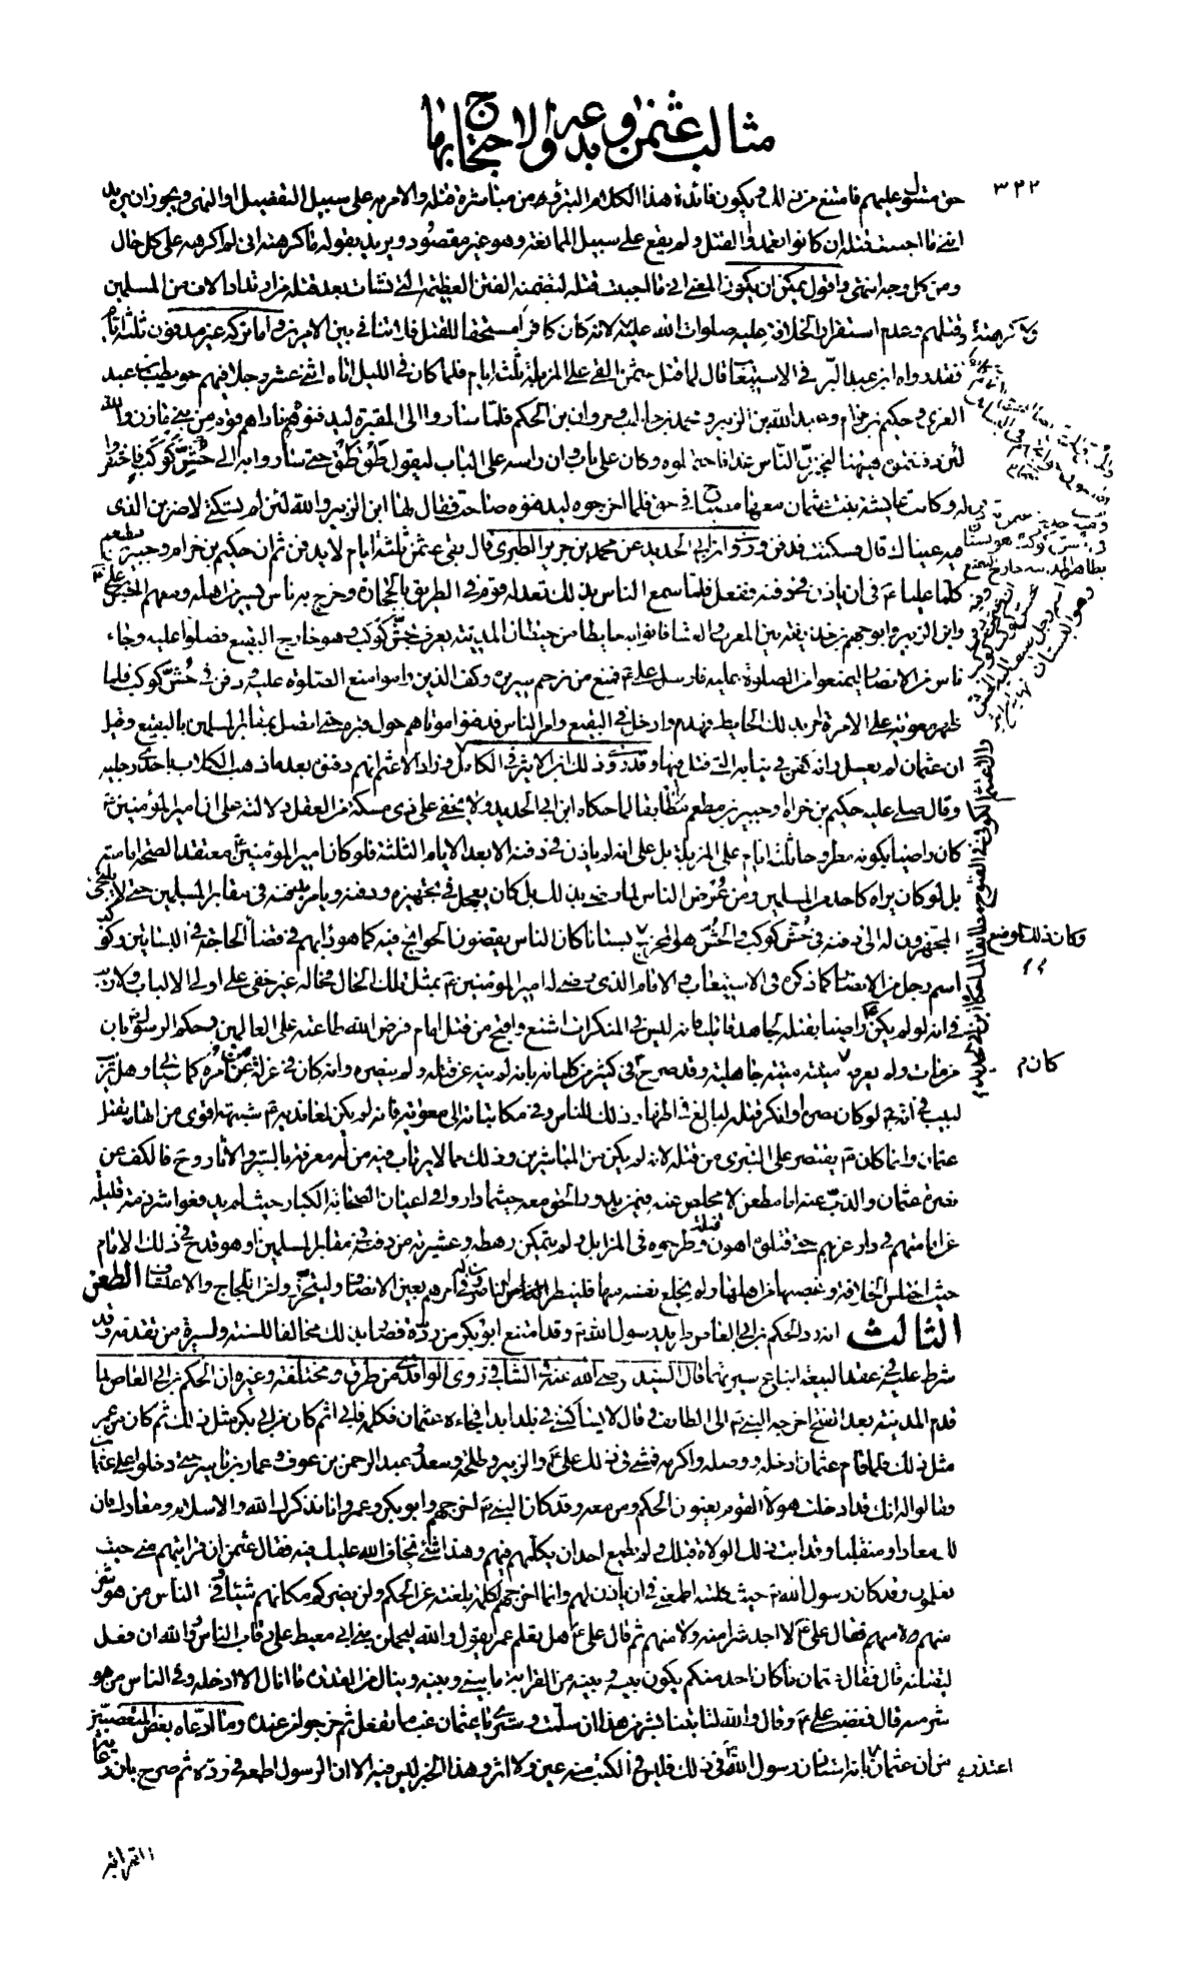 مثالب عثمن وبدعه والاحتجاج بها
٣٢٢
حق متول عليهم فامتنع من ذلك ويكون فائدة هذا الكلام التبرؤ من مباشرة قتله والامر به على سبيل التفصيل او النهى ويجوز ان يريد
اننى ما احببت قتله ان كانوا تعمدوا القتل ولم يقع على سبيل الممانعة وهو غير مقصود ويريد بقوله ما كرهته انى لم اكرهه على كل حال
ومن كل وجه انتهى واقول يمكن ان يكون المعنى انى ما احببت قتله لتضمنه الفتن العظيمة التى نشات بعد قتله من ارتداد الالاف من المسلمين
وقتلهم وعدم استقرار الخلافة عليه صلوات الله عليه وما كرهته لانه كان كافرا مستحقا للقتل فلا تنافى بين الامرين واما تركه غير مدفون ثلثة ايام
فقد رواه ابن عبد البر فى الاستيعاب قال لما قتل عثمن القى على المزبلة ثلثة ايام فلما كان فى الليل اتاه اثنى عشر رجلا فيهم حويطب بن عبد
العزى وحكيم بن حزام وعبد الله بن الزبير ومحمد بن حاطب ومروان بن الحكم فلما ساروا الى المقبرة ليدفنوه ناداهم قوم من بنى مازن والله
لئن دفنتموه هيهنا لنخبرن الناس غدا فاحتملوه وكان على باب وان راسه على الباب ليقول طق طق حتى ساروا به الى حش كوكب فاحتفروا
له وكانت عايشة بنت عثمان معها مصباح فى حق فلما اخرجوه ليدفنوه صاحت فقال لها ابن الزبير والله لئن لم تسكتى لاضربن الذى
فيه عيناك قال فسكتت فدفن وروى ابن ابى الحديد عن محمد بن جرير الطبرى قال بقى عثمن ثلثة ايام لا يدفن ثم ان حكيم بن حزام وجبير بن مطعم
كلما عليا ع فى ان ياذن فى دفنه ففعل فلما سمع الناس بذلك قعد له قوم فى الطريق بالحجارة وخرج به ناس يسير من اهله ومعهم الحسن بن على ع
وابن الزبير وابو جهم بن حذيفة بين المغرب والعشا فاتوا به حايطا من حيطان المدينة يعرف بحش كوكب وهو خارج البقيع فصلوا عليه وجاء
ناس من الانصار ليمنعوا من الصلوة عليه فارسل على ع فمنع من رجم سريره وكف الذين راموا منع الصلوة عليه ودفن فى حش كوكب فلما
ظهر معوية على الامرة امر بذلك الحايط فهدم وادخل فى البقيع وامر الناس فدفنوا موتاهم حول قبره حتى اتصل بمقابر المسلمين بالبقيع وقيل
ان عثمان لم يغسل وانه كفن فى ثيابه التى قتل فيها وقد روى ذلك ابن الاثير فى الكامل وزاد الاعثم انهم دفنوه بعد ما ذهب الكلاب باحدى رجليه
وقال صلى عليه حكيم بن حزام او جبير بن مطعم مطابقا لما حكاه ابن ابى الحديد ولا يخفى على ذى مسكة من العقل دلالته على ان امير المؤمنين ع
كان راضيا بكونه مطروحا ثلثة ايام على المزبلة بل على انه لم ياذن فى دفنه الا بعد الايام الثلثة فلو كان امير المؤمنين ع معتقدا لصحة امامته
بل لو كان يراه كاحد من المسلمين ومن عرض الناس لما رضى بذلك بل كان يعجل فى تجهيزه ودفنه ويامر بدفنه فى مقابر المسلمين حتى لا يلتجى
المجهزون له الى دفنه فى حش كوكب والحش هو المخرج وكان ذلك الموضع بستانا كان الناس يقضون الحوائج فيه كما هو دابهم فى قضاء الحاجة فى البساتين وكوكب
اسم رجل من الانصار كما ذكره فى الاستيعاب والامام الذى رضى له امير المؤمنين ع بمثل تلك الحال فحاله غير خفى على اولى الالباب ولا ريب
فى انه لو لم يكن راضيا بقتله لجاهد قاتليه فانه ليس فى المنكرات اشنع واقبح من قتل امام فرض الله طاعته على العالمين وحكم الرسول ص بان
من مات ولم يعرفه كان م ميتته ميتة جاهلية وقد صرح ع فى كثير من كلماته بانه لم ينه عن قتله ولم ينصره وانه كان فى عزلة من امره كما سيجئ وهل يريب
لبيب فى انه ع لو كان نصره او انكر قتله لبالغ فى اظهار ذلك للناس وفى مكاتباته الى معوية فانه لم يكن لمعانديه ع شبهة اقوى من اتهامه بقتل
عثمان وانما كان ع يقتصر على التبرى من قتله لانه لم يكن من المباشرين وذلك مما لا يرتاب فيه من له معرفة بالسير والاثار وح فالكف عن
نصرة عثمان والذب عنه اما مطعن لا مخلص عنه فيمن يدور الحق معه حيثما دار وفى اعيان الصحابة الكبار حيث لم يدفعوا شرذمة قليلة
عن امامهم فى دار عزهم حتى قتلوه اهون قتلة وطرحوه فى المزابل ولم يتمكن رهطه وعشيرته من دفنه فى مقابر المسلمين او هو قدح فى ذلك الامام
حيث اختلس الخلافة وغصبها من اهلها ولم يخلع نفسه منها فلينظر الناظرون فى امرهم بعين الانصاف وليتحرزوا من اللجاج والاعتساف الطعن
الثالث انه رد الحكم بن ابى العاص طريد رسول الله ص وقد امتنع ابو بكر من رده فصار بذلك مخالفا للسنة ولسيرة من تقدمه وقد
شرط عليه فى عقد البيعة اتباع سيرتهما قال السيد رضى الله عنه فى الشافى روى الواقدى من طرق مختلفة وغيره ان الحكم بن ابى العاص لما
قدم المدينة بعد الفتح اخرجه النبى ص الى الطائف وقال لا يساكننى فى بلد ابدا فجاءه عثمان فكلمه فابى ثم كان من ابى بكر مثل ذلك ثم كان من عمر
مثل ذلك فلما قام عثمان ادخله ووصله واكرمه فمشى فى ذلك على ع والزبير وطلحة وسعد وعبد الرحمن بن عوف وعمار بن ياسر حتى دخلوا على عثمان
وقالوا له انك قد ادخلت هؤلاء القوم يعنون الحكم ومن معه وقد كان النبى ص اخرجهم وابو بكر وعمر وانا نذكرك الله والاسلام ومعادك فان
لك معادا ومنقلبا وقد ابت ذلك الولاة قبلك ولم يطمع احد ان يكلمهم فيهم وهذا شئ نخاف الله عليك فيه فقال عثمن ان قرابتهم منى حيث
تعلمون وقد كان رسول الله ص حيث كلمته اطمعنى فى ان ياذن لهم وانما اخرجهم لكلمة بلغته عن الحكم ولن يضركم مكانهم شيئا وفى الناس من هو شر
منهم فقال على ع لا اجد شرا منه ولا منهم ثم قال على ع هل تعلم عمر يقول والله ليحملن بنى ابى معيط على رقاب الناس والله ان فعل
ليقتلنه قال فقال عثمان ما كان احد منكم يكون بينه وبينه من القرابة ما بينى وبينه وينال من القدرة ما انال الا ادخله وفى الناس من هو
شر منه قال فغضب على ع وقال والله لتاتينا بشر من هذا ان سلمت وسترى يا عثمان غب ما تفعل ثم خرجوا من عنده وما ادعاه بعض المتعصبين
من ان عثمان اعتذر بانه استاذن رسول الله ص فى ذلك فليس فى الكتب منه عين ولا اثر وهذا الخبر ليس فيه الا ان الرسول اطمعه فى رده ثم صرح بان رعاية
القرابة